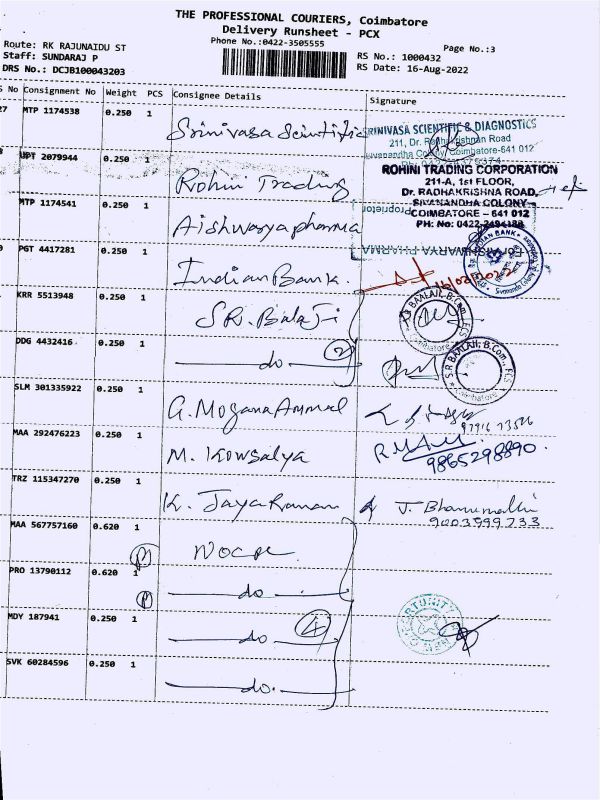 THE PROFESSIONAL COURIERS, Coimbatore
Delivery Runsheet - PCX
Phone No.:0422-3505555
Page No.:3
Route: RK RAJUNAIDU ST
Staff: SUNDARAJ P
DRS No.: DCJB100043203
RS No.: 1000432
RS Date: 16-Aug-2022
S No Consignment No Weight PCS Consignee Details Signature
27 MTP 1174538 0.250 1 Srinivasa Scientific
SRINIVASA SCIENTIFIC & DIAGNOSTICS
211, Dr. Radhakrishnan Road
Coimbatore-641 012
UPT 2079944 0.250 1 Rohini Trading
ROHINI TRADING CORPORATION
211-A, 1st FLOOR,
Dr. RADHAKRISHNA ROAD,
SIVANANDHA COLONY
COIMBATORE - 641 012
PH: No: 0422-2494188
MTP 1174541 0.250 1 Aishwarya pharma
Proprietor
For AISHWARYA PHARMA
PGT 4417281 0.250 1 Indian Bank.
INDIAN BANK
KRR 5513948 0.250 1 SR. Balaji
S.R. BAALAJI, B.Com., FCS
Coimbatore
DDG 4432416 0.250 1 do 2
S.R. BAALAJI, B.Com., FCS
Coimbatore
SLM 301335922 0.250 1 G. Mogana Ammal
MAA 292476223 0.250 1 M. Kowsalya
9865298890
TRZ 115347270 0.250 1 K. Jayaraman J. Bhanumathi
9003999733
MAA 567757160 0.620 1
PRO 13790112 0.620 1 do
MDY 187941 0.250 1 do 4
SVK 60284596 0.250 1 do